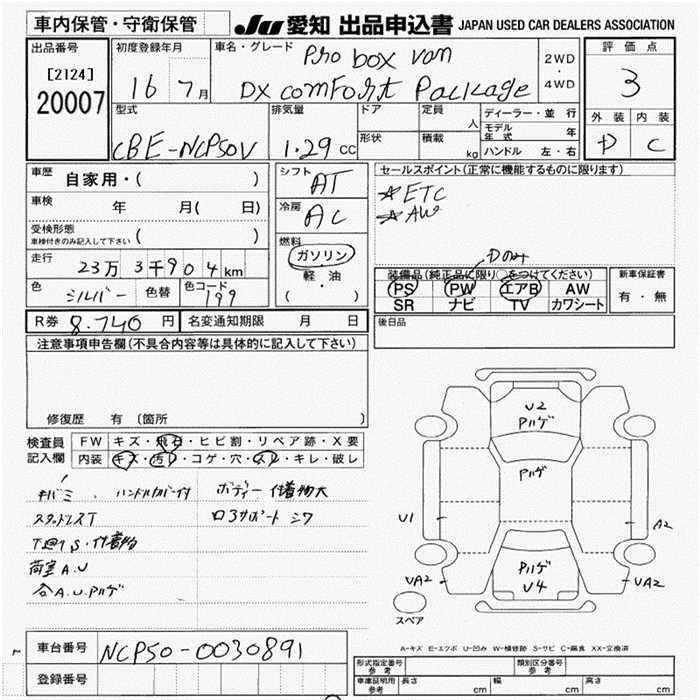 車内保管・守衛保管
JU 愛知 出品申込書 JAPAN USED CAR DEALERS ASSOCIATION
出品番号
[2124]
20007
初度登録年月
16 7月
車名・グレード
Pro box van
DX comfort Package
2WD
・
4WD
評価点
3
外装 内装
D C
型式
CBE-NCP50V
排気量
1.29 CC
ドア
形状
定員
人
積載
kg
ディーラー・並行
モデル年式 年
ハンドル 左・右
車歴
自家用・( )
車検
年 月( 日)
受検形態
車検付きのみ記入して下さい ( )
走行
23万3千904km
色
シルバー
色替
色コード
199
シフト
AT
冷房
AC
燃料
ガソリン
・
軽・油
( ・ )
セールスポイント(正常に機能するものに限ります)
☆ETC
☆AW
Dのみ
装備品(純正品に限り○をつけてください)
PS PW エアB AW
SR ナビ TV カワシート
新車保証書
有・無
R券 8.740 円
名変通知期限 月 日
後日品
注意事項申告欄(不具合内容等は具体的に記入して下さい)
修復歴 有 〔箇所 〕
検査員
記入欄
FW キズ・飛石・ヒビ割・リペア跡・X要
内装 キズ・汚レ・コゲ・穴・スレ・キレ・破レ
キバミ、ハンドルカバー付
ボディー付着物大
スタッドレスT
ロ3サポートシワ
下廻りS・付着物
荷室A.U
各A.U.Pハゲ
U2
Pハゲ
Pハゲ
Pハゲ
U4
U1
A2
UA2
UA2
スペア
A-キズ E-エクボ U-凹み W-補修跡 S-サビ C-腐食 XX-交換済
車台番号 NCP50-0030891
登録番号
形式指定番号
参考
類別区分番号
参考
車庫証明用
参考
長さ cm
幅 cm
高さ cm